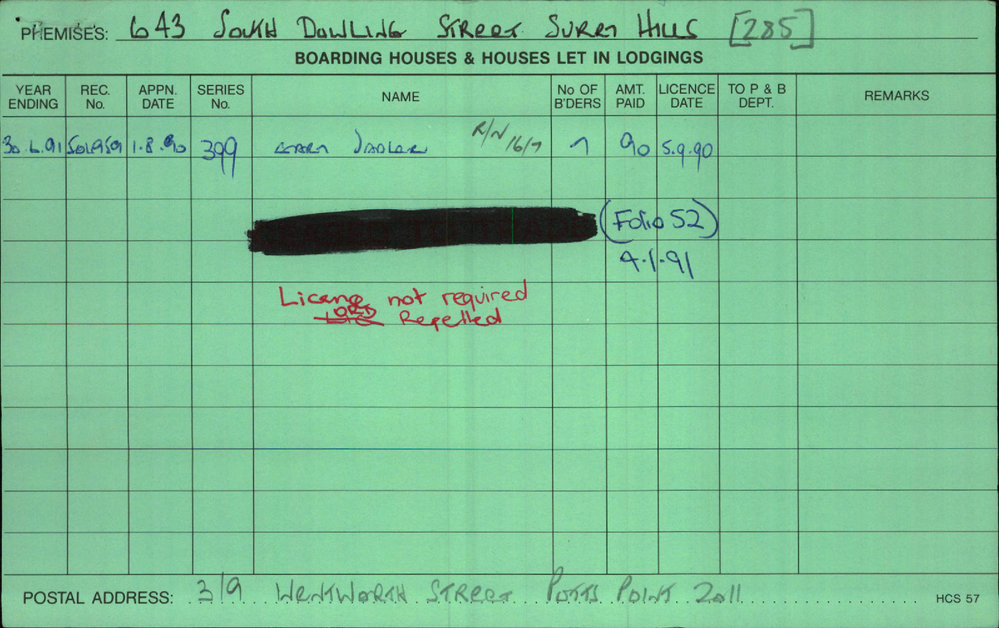 PREMISES: 643 SOUTH DOWLING STREET SURRY HILLS [285]
BOARDING HOUSES & HOUSES LET IN LODGINGS
YEAR ENDING REC. No. APPN. DATE SERIES No. NAME No OF B'DERS AMT. PAID LICENCE DATE TO P & B DEPT. REMARKS
30.6.91 1.8.90 399 R/N 16/7 7 90 5.9.90
(Folio 52)
4.1.91
Licence not required
ORD Repelled
POSTAL ADDRESS: 3/9 WENTWORTH STREET POTTS POINT 2011 HCS 57